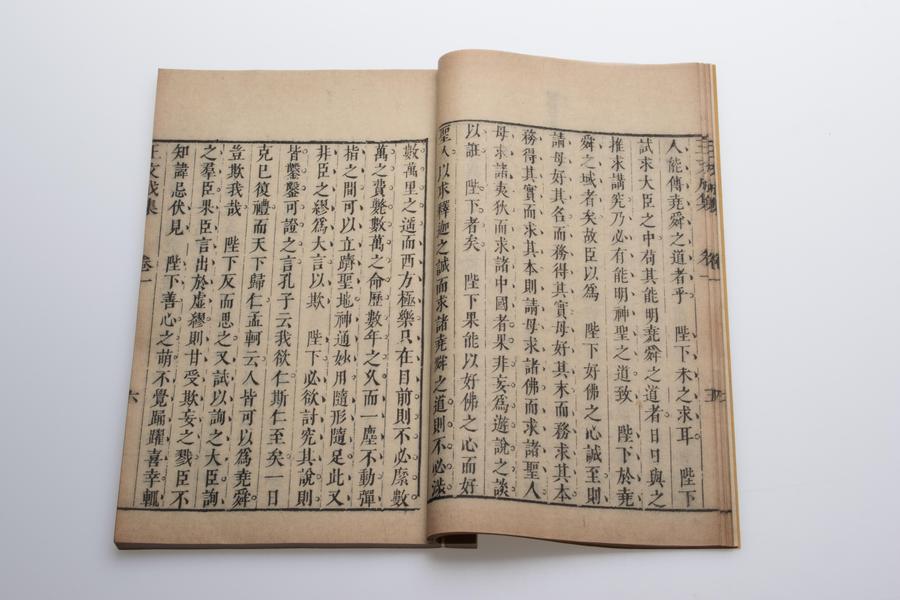 人能傳堯舜之道者乎　陛下未之求耳　陛下
試求大臣之中苟其能明堯舜之道者日日與之
推求講究乃必有能明神聖之道致　陛下於堯
舜之域者矣故臣以為　陛下好佛之心誠至則
請毋好其名而務得其實毋好其末而務求其本
務得其實而求其本則請毋求諸佛而求諸聖人
毋求諸夷狄而求諸中國者果非妄為遊說之談
以誑　陛下者矣　陛下果能以好佛之心而好
聖人以求釋迦之誠而求諸堯舜之道則不必涉
數萬里之遥而西方極樂只在目前則不必縻數
萬之費斃數萬之命歷數年之久而一塵不動彈
指之間可以立躋聖地神通妙用隨形隨足此又
非臣之繆為大言以欺　陛下必欲討究其說則
皆鑿鑿可證之言孔子云我欲仁斯仁至矣一日
克已復禮而天下歸仁孟軻云人皆可以為堯舜
豈欺我哉　陛下反而思之又試以詢之大臣詢
之羣臣果臣言出於虛繆則甘受欺妄之戮臣不
知諱忌伏見　陛下善心之萌不覺踊躍喜幸輒
文成集　卷一　六